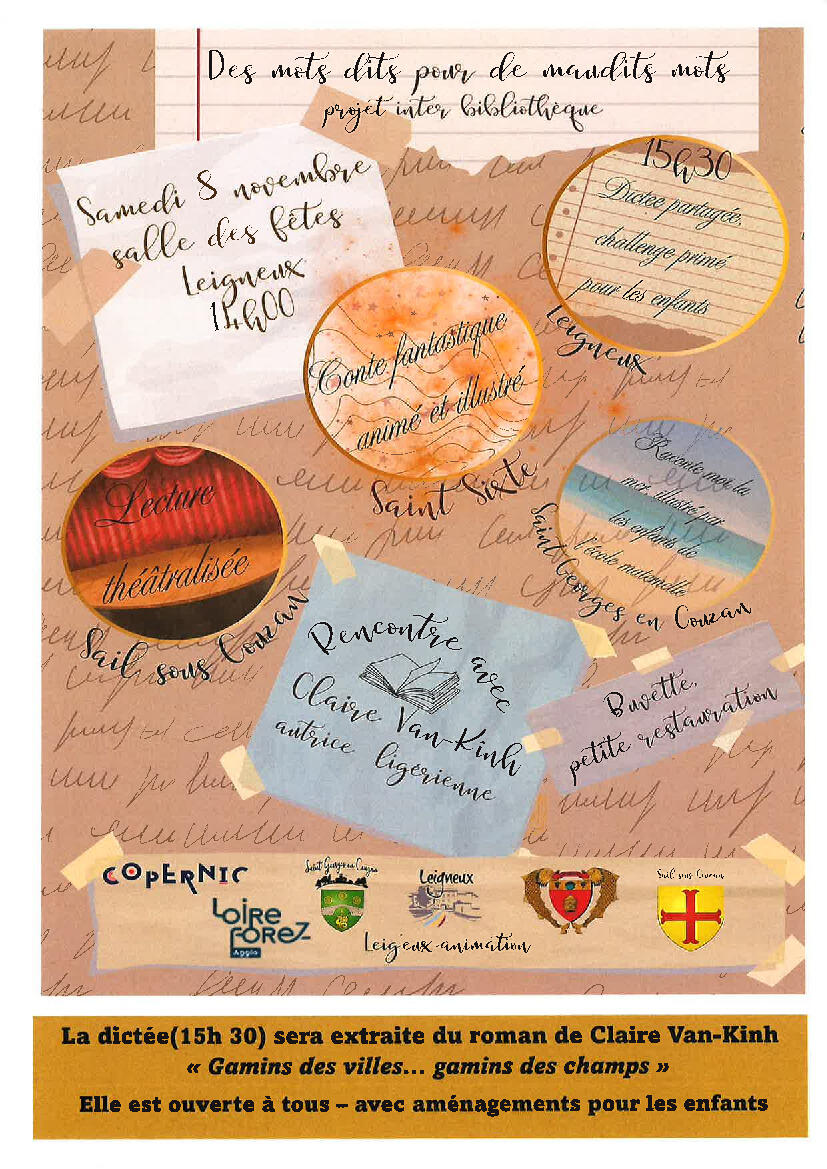 Des mots dits pour de maudits mots
projet inter bibliothèque
Samedi 8 novembre
salle des fêtes
Leigneux
14h00
15h30
Dictée partagée,
challenge primé
pour les enfants
Leigneux
Conte fantastique
animé et illustré
Saint Sixte
Lecture
théâtralisée
Sail sous Couzan
Raconte moi la
mer illustré par
les enfants de
l'école maternelle
Saint Georges en Couzan
Rencontre avec
Claire Van-Kinh
autrice ligérienne
Buvette,
petite restauration
COPERNIC
Loire
Forez
Agglo
Saint Georges en Couzan
Leigneux
Leigeux-animation
Sail sous Couzan
La dictée(15h 30) sera extraite du roman de Claire Van-Kinh
« Gamins des villes... gamins des champs »
Elle est ouverte à tous – avec aménagements pour les enfants